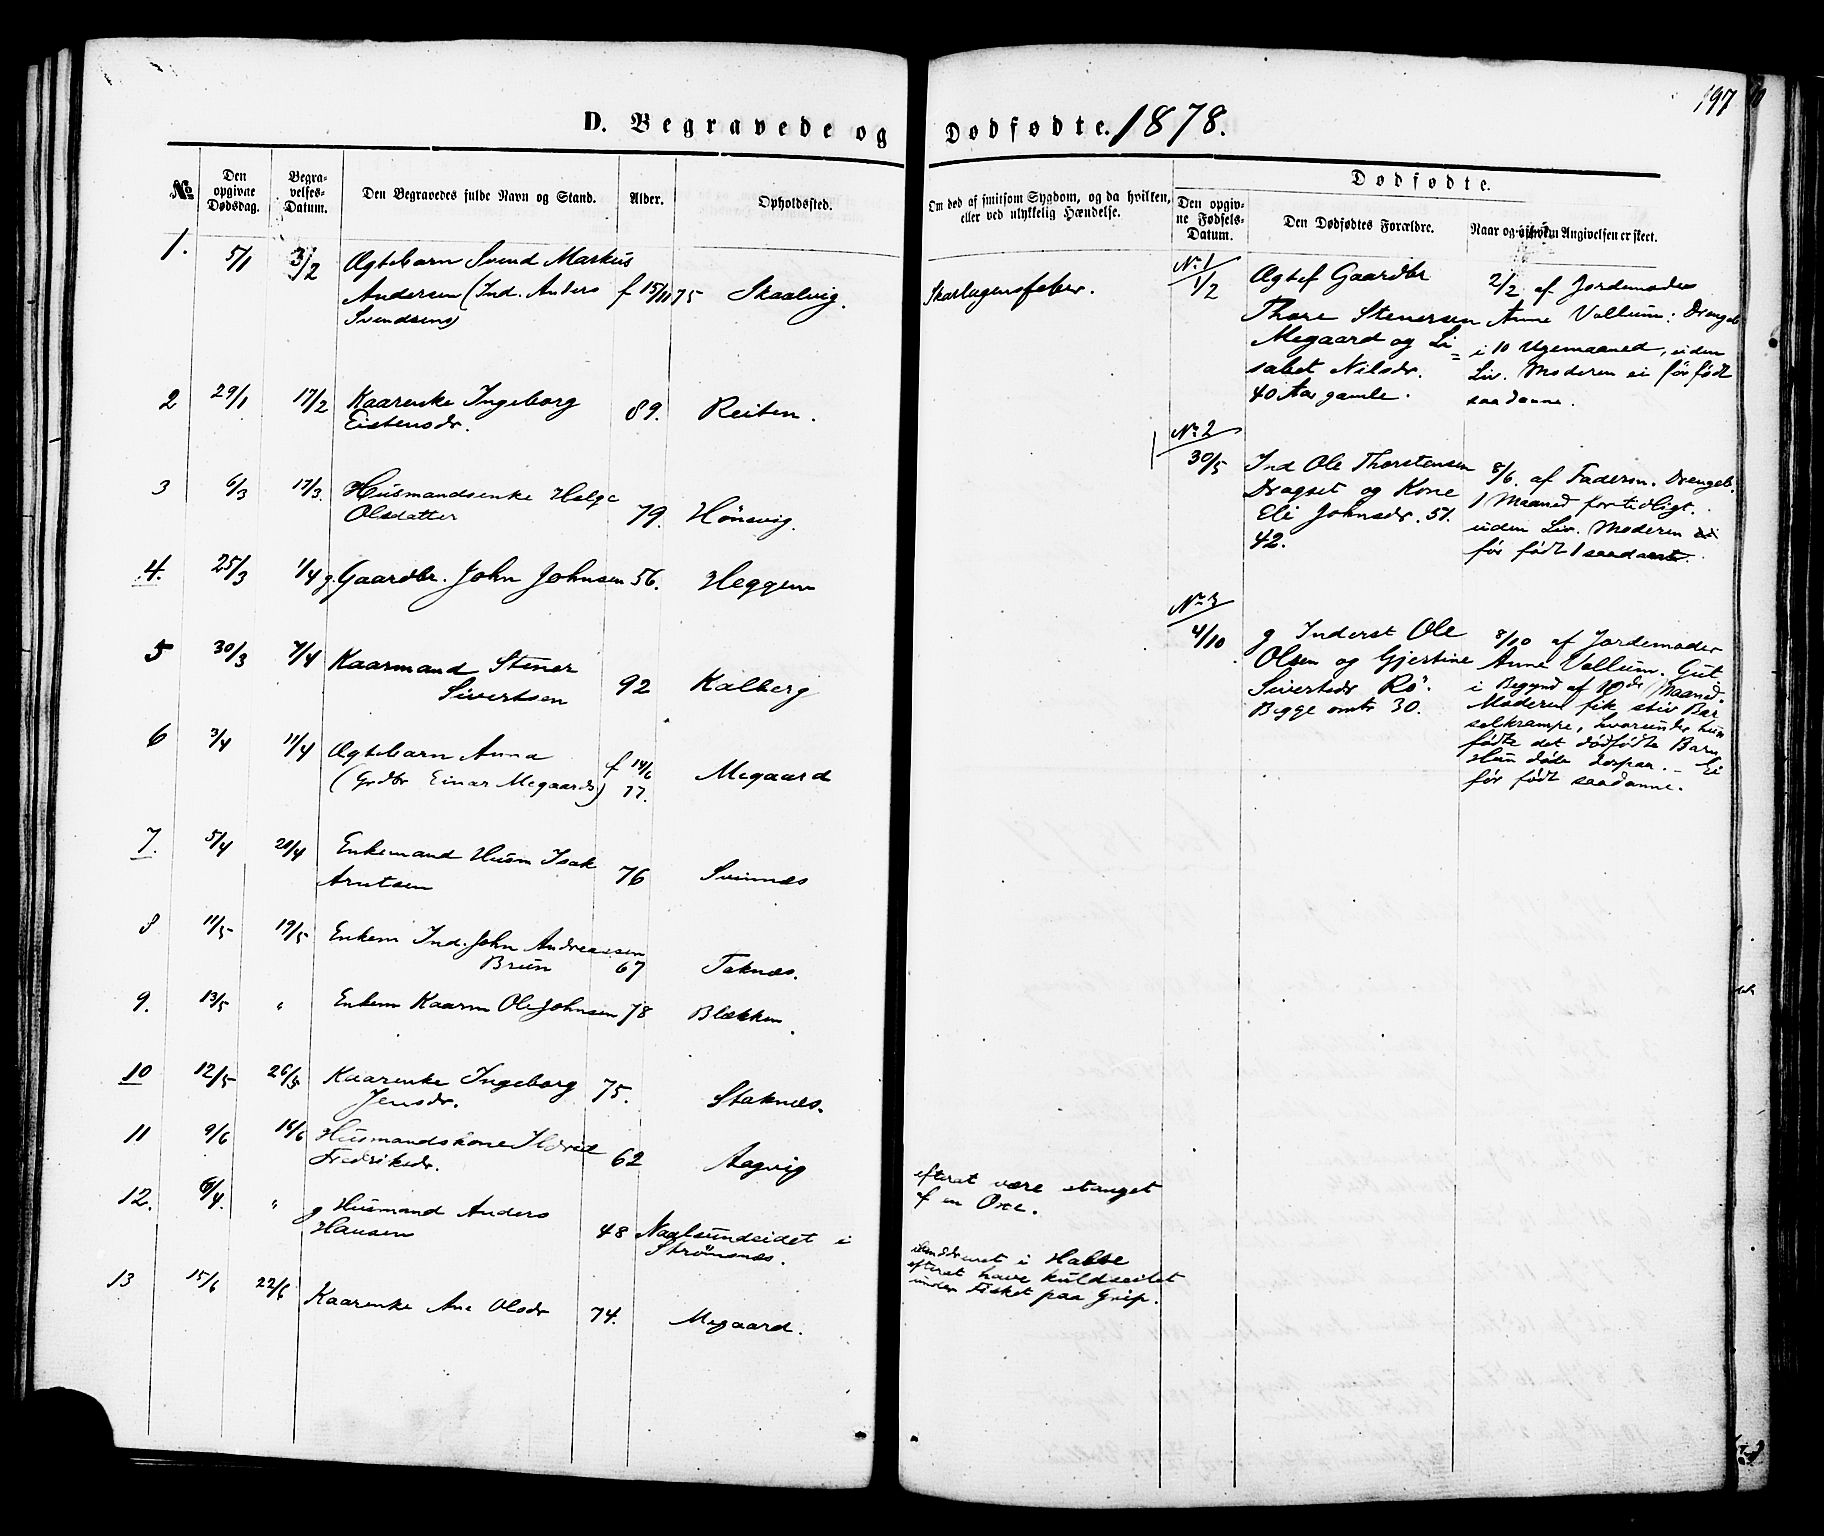 197
D. Begravede og Dødfødte. 1878.
№
Den opgivne Dødsdag.
Begravelses-Datum.
Den Begravedes fulde Navn og Stand.
Alder.
Opholdssted.
Om død af smitsom Sygdom, og da hvilken, eller ved ulykkelig Hændelse.
Dødfødte.
Den opgivne Fødsels-Datum.
Den Dødfødtes Forældre.
Naar og af hvem Angivelsen er skeet.
1. 5/1 3/2 Ægtebarn Svend Markus
Andersen (Ind. Anders f 15/11 75 Skaalvig. Skarlagensfeber.
Svendsens)
2 29/1 17/2 Kaarenke Ingeborg
Eistensdr. 89. Reiten.
3 6/3 17/3. Husmandsenke Helge
Olsdatter 79. Hönsvig.
4. 25/3 1/4 g. Gaardbr. John Johnsen 56. Heggem
5 30/3 7/4 Kaarmand Stener
Sivertsen 92 Kalberg
6 3/4 11/4 Ægtebarn Anna f 14/6
(Grdbr Einar Megaards) 77. Megaard
7. 5/4 20/4 Enkemand Husm Isak
Arntsen 76 Svinnæs
8 11/5 19/5 Enkem Ind. John Andreassen
Brun 67 Taknæs.
9. 13/5 " Enkem Kaarm Ole Johnsen 78 Blækken.
10 12/5 26/5 Kaarenke Ingeborg
Jensdr. 75. Staknæs.
11 9/6 16/6 Husmandskone Ildrid
Fredriksdr. 62 Aagvig
12. 6/4. " g Husmand Anders
Hansen 48 Naalsundeidet i
Strömsnæs.
efterat være stanget
af en Oxe.
13 15/6 22/6 Kaarenke Ane Olsdr 74. Megaard.
i Habbe
efterat have kuldseilet
under Fisket paa Grip.
No. 1
1/2 Ægtef Gaardbr
Thore Stenersen
Megaard og Li=
sabet Nilsdr.
40 Aar gamle.
2/2. af Jordemoder
Anne Vollum: Drengeb
i 10 Ugemaaned, uden
Liv. Moderen ei för födt
saadanne.
No. 2
30/5 Ind Ole Thorstensen
Dragset og Kone
Eli Johnsdr. 51.
42.
8/6. af Faderen. Drengeb.
1 Maaned for tidligt.
uden Liv. Moderen
för födt 1 saadant.
No. 3
4/10 g Inderst Ole
Olsen og Gjertine
Sivertsdr Rö.
Begge omtr 30.
8/10 af Jordemoder
Anne Vollum. Gut
i Begynd af 10de Maaned.
Moderen fik stiv Bar
selkrampe, hvorunder hun
födte det dödfödte Barn
Hun döde derpaa. – Ei
för födt saadanne.